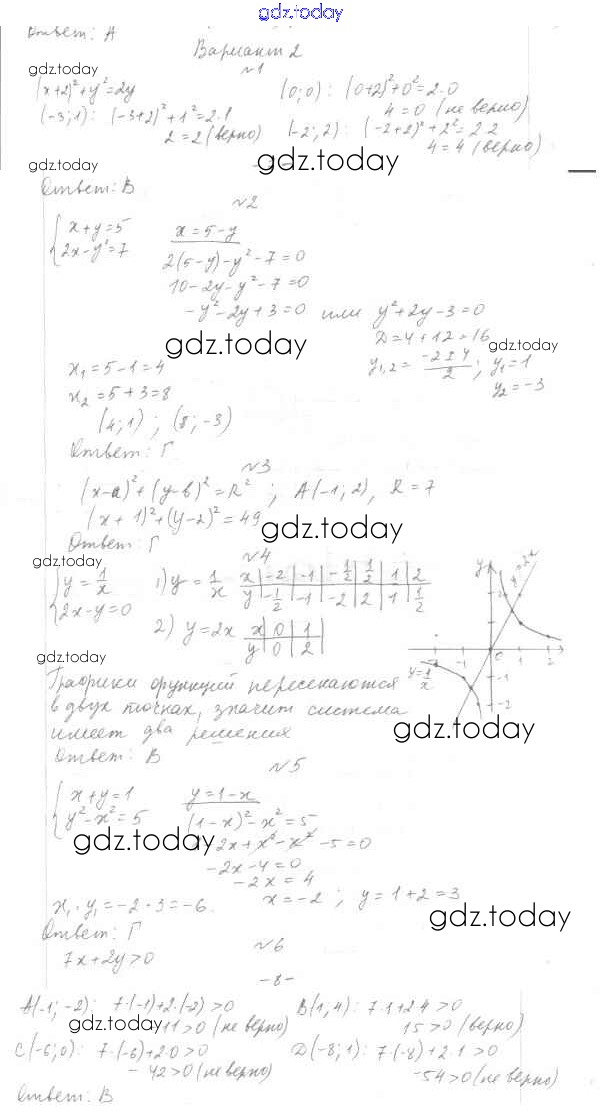 gdz.today
Ответ: А
Вариант 2
gdz.today
№1
(x+2)²+y²=2y
(0;0): (0+2)²+0²=2·0
4=0 (не верно)
(-3;1): (-3+2)²+1²=2·1
2=2 (верно)
(-2;2): (-2+2)²+2²=2·2
4=4 (верно)
gdz.today
gdz.today
Ответ: В
№2
{x+y=5
2x-y²=7
x=5-y
2(5-y)-y²-7=0
10-2y-y²-7=0
-y²-2y+3=0 или y²+2y-3=0
D=4+12=16
gdz.today
gdz.today
y1,2 = (-2±4)/2; y₁=1
y₂=-3
x₁=5-1=4
x₂=5+3=8
(4;1); (8;-3)
Ответ: Г
№3
(x-a)²+(y-b)²=R²; A(-1;2), R=7
(x+1)²+(y-2)²=49
gdz.today
Ответ: Г
№4
gdz.today
{y=1/x
2x-y=0
1) y=1/x
x -2 -1 -1/2 1/2 1 2
y -1/2 -1 -2 2 1 1/2
2) y=2x
x 0 1
y 0 2
y
y=2x
x
0 1 2
-1
-2
y=1/x
gdz.today
Графики функций пересекаются
в двух точках, значит система
имеет два решения
gdz.today
Ответ: В
№5
{x+y=1
y²-x²=5
y=1-x
(1-x)²-x²=5
2x+x²-x²-5=0
gdz.today
-2x-4=0
-2x=4
x=-2; y=1+2=3
x₁·y₁=-2·3=-6.
gdz.today
Ответ: Г
№6
7x+2y>0
-8-
A(-1;-2): 7·(-1)+2·(-2)>0
-11>0 (не верно)
B(1;4): 7·1+2·4>0
15>0 (верно)
gdz.today
C(-6;0): 7·(-6)+2·0>0
-42>0 (не верно)
D(-8;1): 7·(-8)+2·1>0
-54>0 (не верно)
Ответ: В